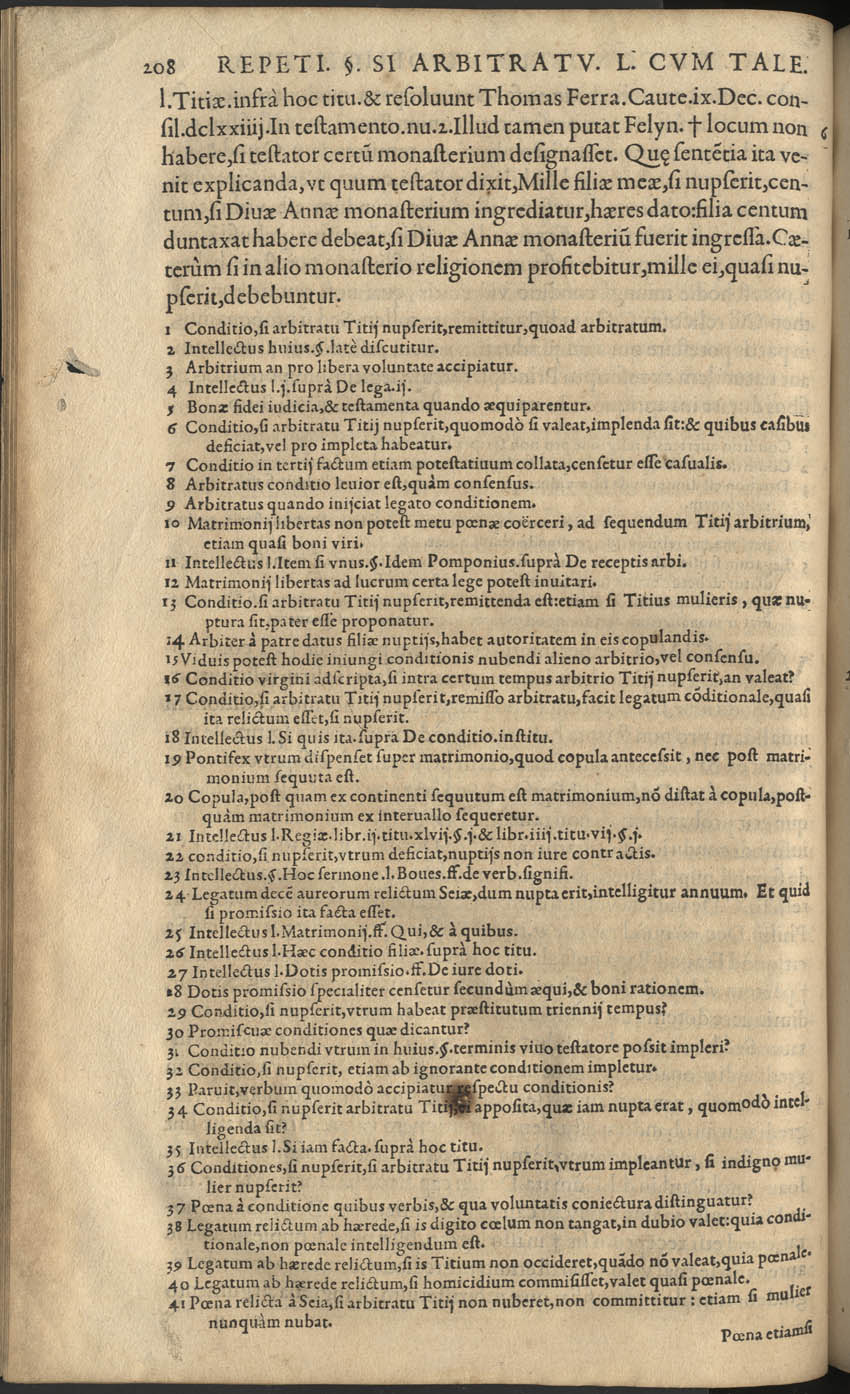 208 REPETI. §. SI ARBITRATV. L. CVM TALE.
l.Titiæ.infrà hoc titu.& reſoluunt Thomas Ferra.Caute.ix.Dec. con-
ſil.dclxxiiij.In teſtamento.nu.2.Illud tamen putat Felyn. † locum non 6
habere,ſi teſtator certũ monaſterium deſignaſſet. Quę ſentẽtia ita ve-
nit explicanda,vt quum teſtator dixit,Mille filiæ meæ,ſi nupſerit,cen-
tum,ſi Diuæ Annæ monaſterium ingrediatur,hæres dato:filia centum
duntaxat habere debeat,ſi Diuæ Annæ monaſteriũ fuerit ingreſſa.Cæ-
terùm ſi in alio monaſterio religionem profitebitur,mille ei,quaſi nu-
pſerit,debebuntur.
1 Conditio,ſi arbitratu Titij nupſerit,remittitur,quoad arbitratum.
2 Intellectus huius.§.latè diſcutitur.
3 Arbitrium an pro libera voluntate accipiatur.
4 Intellectus l.j.ſuprà De lega.ij.
5 Bonæ fidei iudicia,& teſtamenta quando æquiparentur.
6 Conditio,ſi arbitratu Titij nupſerit,quomodò ſi valeat,implenda ſit:& quibus caſibus
deficiat,vel pro impleta habeatur.
7 Conditio in tertij factum etiam poteſtatiuum collata,cenſetur eſſe caſualis.
8 Arbitratus conditio leuior eſt,quàm conſenſus.
9 Arbitratus quando inijciat legato conditionem.
10 Matrimonij libertas non poteſt metu pœnæ coërceri, ad ſequendum Titij arbitrium,
etiam quaſi boni viri.
11 Intellectus l.Item ſi vnus.§.Idem Pomponius.ſuprà De receptis arbi.
12 Matrimonij libertas ad lucrum certa lege poteſt inuitari.
13 Conditio.ſi arbitratu Titij nupſerit,remittenda eſt:etiam ſi Titius mulieris, quæ nu-
ptura ſit,pater eſſe proponatur.
14 Arbiter à patre datus filiæ nuptijs,habet autoritatem in eis copulandis.
15 Viduis poteſt hodie iniungi conditionis nubendi alieno arbitrio,vel conſenſu.
16 Conditio virgini adſcripta,ſi intra certum tempus arbitrio Titij nupſerit,an valeat?
17 Conditio,ſi arbitratu Titij nupſerit,remiſſo arbitratu,facit legatum cõditionale,quaſi
ita relictum eſſet,ſi nupſerit.
18 Intellectus l. Si quis ita.ſupra De conditio.inſtitu.
19 Pontifex vtrum diſpenſet ſuper matrimonio,quod copula anteceſsit, nec poſt matri-
monium ſequuta eſt.
20 Copula,poſt quam ex continenti ſequutum eſt matrimonium,nõ diſtat à copula,poſt-
quàm matrimonium ex interuallo ſequeretur.
21 Intellectus l.Regiæ.libr.ij.titu.xlvij.§.j.& libr.iiij.titu.vij.§.j.
22 conditio,ſi nupſerit,vtrum deficiat,nuptijs non iure contractis.
23 Intellectus.§.Hoc ſermone.l.Boues.ff.de verb.ſignifi.
24 Legatum decẽ aureorum relictum Seiæ,dum nupta erit,intelligitur annuum. Et quid
ſi promiſsio ita facta eſſet.
25 Intellectus l.Matrimonij.ff.Qui,& à quibus.
26 Intellectus l.Hæc conditio filiæ.ſuprà hoc titu.
27 Intellectus l.Dotis promiſsio.ff.De iure doti.
28 Dotis promiſsio ſpecialiter cenſetur ſecundùm æqui,& boni rationem.
29 Conditio,ſi nupſerit,vtrum habeat præſtitutum triennij tempus?
30 Promiſcuæ conditiones quæ dicantur?
31 Conditio nubendi vtrum in huius.§.terminis viuo teſtatore poſsit impleri?
32 Conditio,ſi nupſerit, etiam ab ignorante conditionem impletur.
33 Paruit,verbum quomodò accipiatur reſpectu conditionis?
34 Conditio,ſi nupſerit arbitratu Titij, appoſita,quæ iam nupta erat, quomodò intel-
ligenda ſit?
35 Intellectus l.Si iam facta.ſuprà hoc titu.
36 Conditiones,ſi nupſerit,ſi arbitratu Titij nupſerit,vtrum impleantur, ſi indigno mu-
lier nupſerit?
37 Pœna à conditione quibus verbis,& qua voluntatis coniectura diſtinguatur?
38 Legatum relictum ab hærede,ſi is digito cœlum non tangat,in dubio valet:quia condi-
tionale,non pœnale intelligendum eſt.
39 Legatum ab hærede relictum,ſi is Titium non occideret,quãdo nõ valeat,quia pœnale.
40 Legatum ab hærede relictum,ſi homicidium commiſiſſet,valet quaſi pœnale.
41 Pœna relicta à Seia,ſi arbitratu Titij non nuberet,non committitur: etiam ſi mulier
nunquàm nubat.
Pœna etiamſi